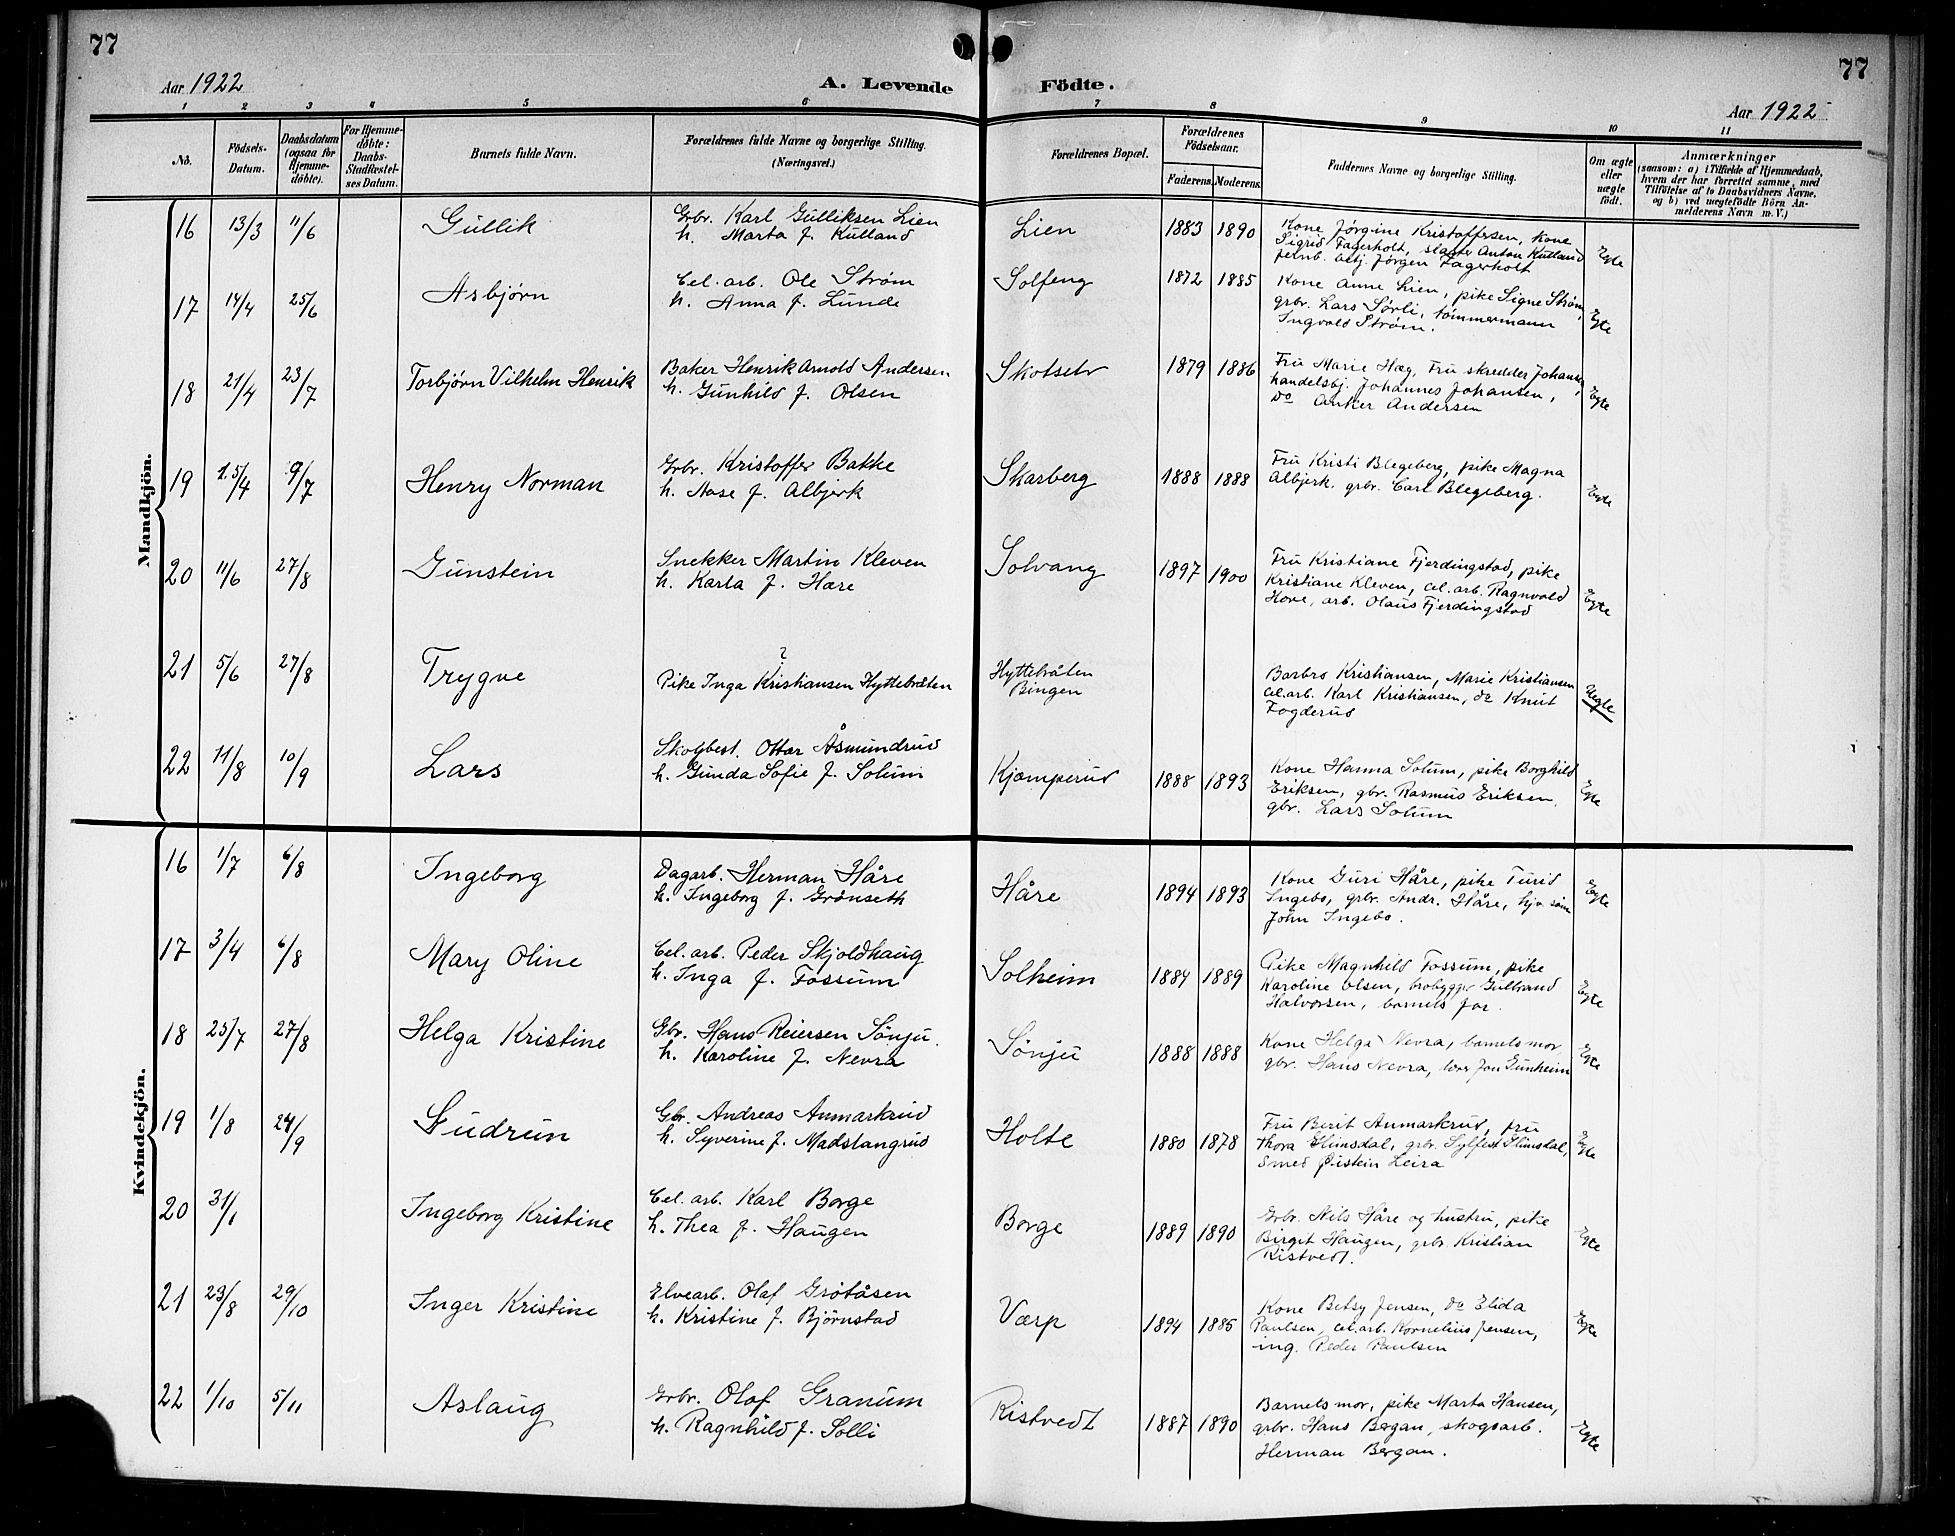 77
77
Aar 1922
A. Levende Födte.
Aar 1922
1 2 3 4 5 6 7 8 9 10 11
No. Födsels-Datum. Daabsdatum (ogsaa for Hjemme-döbte). For Hjemme-döbte: Daabs-Stadfæstel-ses Datum. Barnets fulde Navn. Forældrenes fulde Navne og borgerlige Stilling. (Næringsvei.) Forældrenes Bopæl. Forældrenes Födselsaar. Faderens. Moderens. Faddernes Navne og borgerlige Stilling. Om ægte eller uægte födt. Anmærkninger (saasom: a) i Tilfælde af Hjemmedaab, hvem der har forrettet samme, med Tilföielse af to Daabsvidners Navne, og b) ved uægtefödte Börn An-melderens Navn m. V.)
Mandkjön.
16 13/3 11/6 Gullik Grbr. Karl Gulliksen Lien Lien 1883 1890 Kone Jørgine Kristoffersen, kone
h. Marta f. Kulland Sigrid Fagerholt, slagter Anton Kulland Egte
jernb. betj. Jørgen Fagerholt
17 14/4 25/6 Asbjørn Cel. arb. Ole Strøm Solfeng 1872 1885 Kone Anne Lien, pike Signe Strøm,
h. Anna f. Lunde grbr. Lars Sørli, tømmermann Egte
Ingvald Strøm.
18 21/4 23/7 Torbjørn Vilhelm Henrik Baker Henrik Arnold Andersen Skotselv 1879 1886 Fru Marie Hæg, Fru skredder Johansen,
h. Gunhild f. Olsen handelsbj. Johannes Johansen, Egte
do Anker Andersen
19 15/4 9/7 Henry Norman Grbr. Kristoffer Bakke Skarberg 1888 1888 Fru Kristi Blegeberg, pike Magna
h. Aase f. Albjerk Albjerk, grbr. Carl Blegeberg. Egte
20 11/6 27/8 Gunstein Snekker Martin Kleven Solvang 1897 1900 Fru Kristiane Fjerdingstad, pike
h. Karla f. Hare Kristiane Kleven, cel. arb. Ragnvald
Hove, arb. Olaus Fjerdingstad Egte
21 5/6 27/8 Trygve ? Hyttebråten Barbro Kristiansen, Marie Kristiansen
Pike Inga Kristiansen Hyttebråten Bingen cel. arb. Karl Kristiansen, do Knut Uegte
Fogderud
22 11/8 10/9 Lars Skogbest. Ottar Åsmundrud Kjæmperud 1888 1893 Kone Hanna Solum, pike Borghild
h. Gunda Sofie f. Solum Eriksen, gbr. Rasmus Eriksen, Egte
gbr. Lars Solum
Kvindekjön.
16 1/7 6/8 Ingeborg Dagarb. Herman Håre Håre 1894 1893 Kone Guri Håre, pike Turid Egte
h. Ingeborg f. Grønseth Ingebo, grbr. Andr. Håre,
John Ingebo.
17 3/4 6/8 Mary Oline Cel. arb. Peder Skjoldhaug Solheim 1884 1889 Pike Magnhild Fossum, pike
h. Inga f. Fossum Karoline Olsen, brobygger Gulbrand Egte
Halvorsen, barnets far.
18 25/7 27/8 Helga Kristine Gbr. Hans Reiersen Sønju Sønju 1888 1888 Kone Helga Nevra, barnets mor, Egte
h. Karoline f. Nevra gbr. Hans Nevra, lærer Jon Gunheim
19 1/8 24/9 Gudrun Gbr. Andreas Anmarkrud Holte 1880 1878 Fru Berit Anmarkrud, fru
h. Syverine f. Madslangrud Thora Glimsdal, grbr. Sylfest Glimsdal, Egte
smed Øistein Leira
20 31/1 Ingeborg Kristine Cel. arb. Karl Borge Borge 1889 1890 Grbr. Nils Håre og hustru, pike
h. Thea f. Haugen Birgit Haugen, grbr. Kristian Egte
Ristvedt.
21 23/8 29/10 Inger Kristine Elvearb. Olaf Grøtåsen Værp 1894 1885 Kone Betsy Jensen, do Elida
h. Kristine f. Bjørnstad Paulsen, cel. arb. Kornelius Jensen, Egte
ing. Peder Paulsen
22 1/10 5/11 Aslaug Grbr. Olaf Granum Ristvedt 1887 1890 Barnets mor, pike Marta Hansen,
h. Ragnhild f. Solli grbr. Hans Bergan, skogsarb. Egte
Herman Bergan.